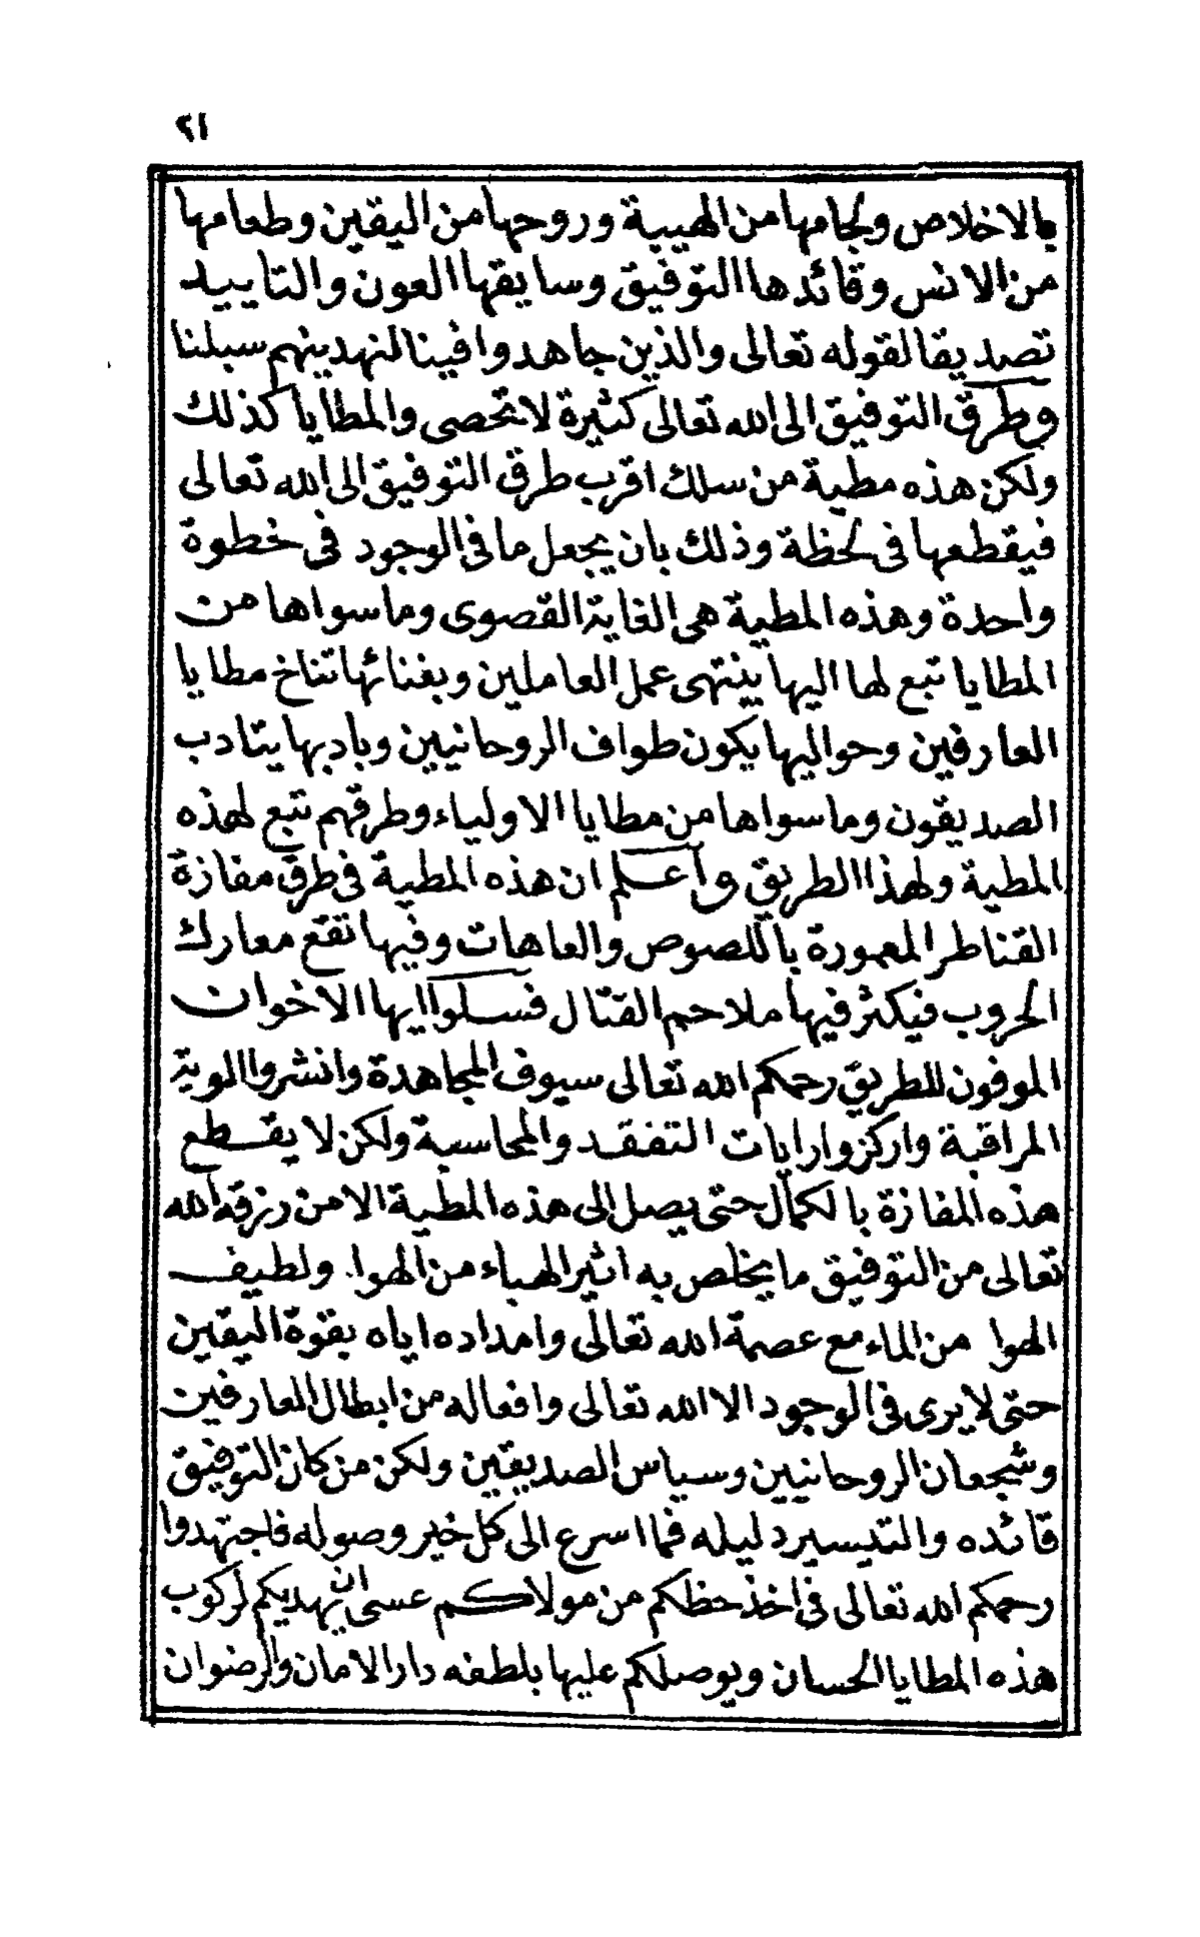 ٢١
بالاخلاص ولجامها من الهيبة وروحها من اليقين وطعامها
من الانس وقائدها التوفيق وسايقها العون والتاييد
تصديقا لقوله تعالى والذين جاهدوا فينا لنهدينهم سبلنا
وطرق التوفيق الى الله تعالى كثيرة لا تحصى والمطايا كذلك
ولكن هذه مطية من سلك اقرب طرق التوفيق الى الله تعالى
فيقطعها فى لحظة وذلك بان يجعل ما فى الوجود فى خطوة
واحدة وهذه المطية هى الغاية القصوى وما سواها من
المطايا تبع لها اليها ينتهى عمل العاملين وبفنائها تناخ مطايا
العارفين وحواليها يكون طواف الروحانيين وبادبها يتادب
الصديقون وما سواها من مطايا الاولياء وطرقهم تبع لهذه
المطية ولهذا الطريق واعلم ان هذه المطية فى طرق مفازة
القناطر المعمورة باللصوص والعاهات وفيها تقع معارك
الحروب فيكثر فيها ملاحم القتال فسلوا ايها الاخوان
الموفون للطريق رحمكم الله تعالى سيوف المجاهدة وانشروا الوية
المراقبة واركزوا رايات التفقد والمحاسبة ولكن لا يقطع
هذه المفازة بالكمال حتى يصل الى هذه المطية الا من رزقه الله
تعالى من التوفيق ما يخلص به اثير الهباء من الهوا ولطيف
الهوا من الماء مع عصمة الله تعالى وامداده اياه بقوة اليقين
حتى لا يرى فى الوجود الا الله تعالى وافعاله من ابطال العارفين
وشجعان الروحانيين وسياس الصديقين ولكن من كان التوفيق
قائده والتيسير دليله فما اسرع الى كل خير وصوله فاجتهدوا
رحمكم الله تعالى فى اخذ حظكم من مولاكم عسى ان يهديكم لركوب
هذه المطايا الحسان ويوصلكم عليها بلطفه دار الامان والرضوان